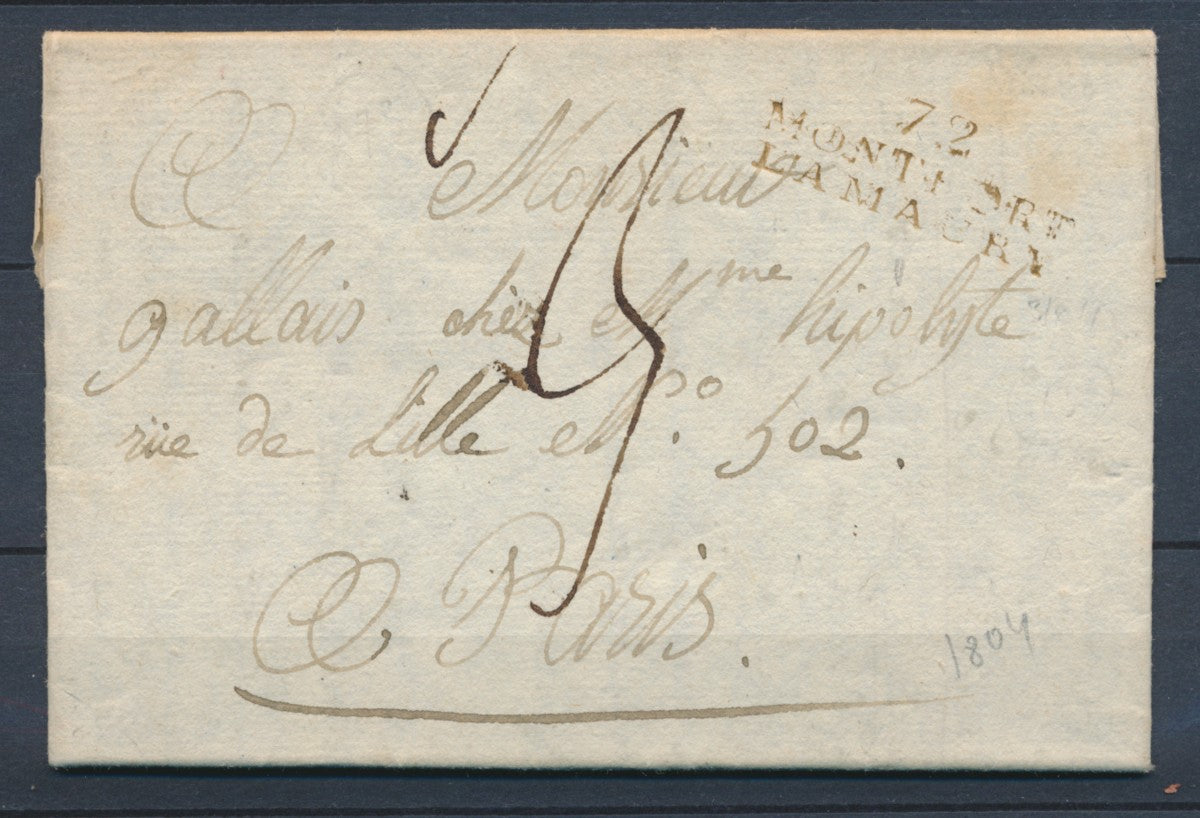 72
MONTFORT
LAMAURY
A Monsieur
gallais chèz Mme hipolyte
rüe de Lille No. 502.
A Paris.
3
1804